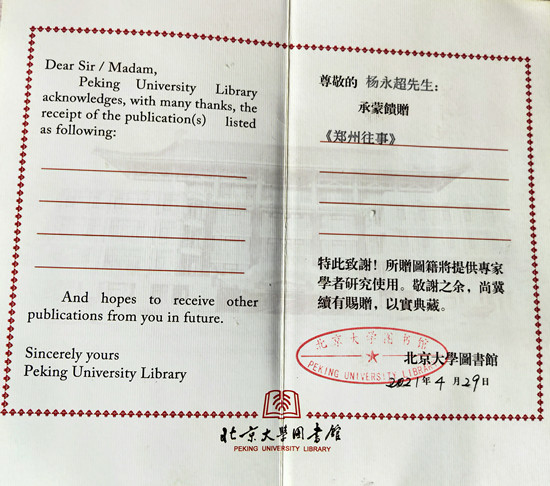 Dear Sir / Madam,
Peking University Library
acknowledges, with many thanks, the
receipt of the publication(s) listed
as following:
And hopes to receive other
publications from you in future.
Sincerely yours
Peking University Library
尊敬的 杨永超先生:
承蒙饋贈
《郑州往事》
特此致謝！所贈圖籍將提供專家
學者研究使用。敬謝之余，尚冀
續有賜贈，以實典藏。
北京大学图书馆
PEKING UNIVERSITY LIBRARY
北京大學圖書館
2021年4月29日
北京大学图书馆
PEKING UNIVERSITY LIBRARY